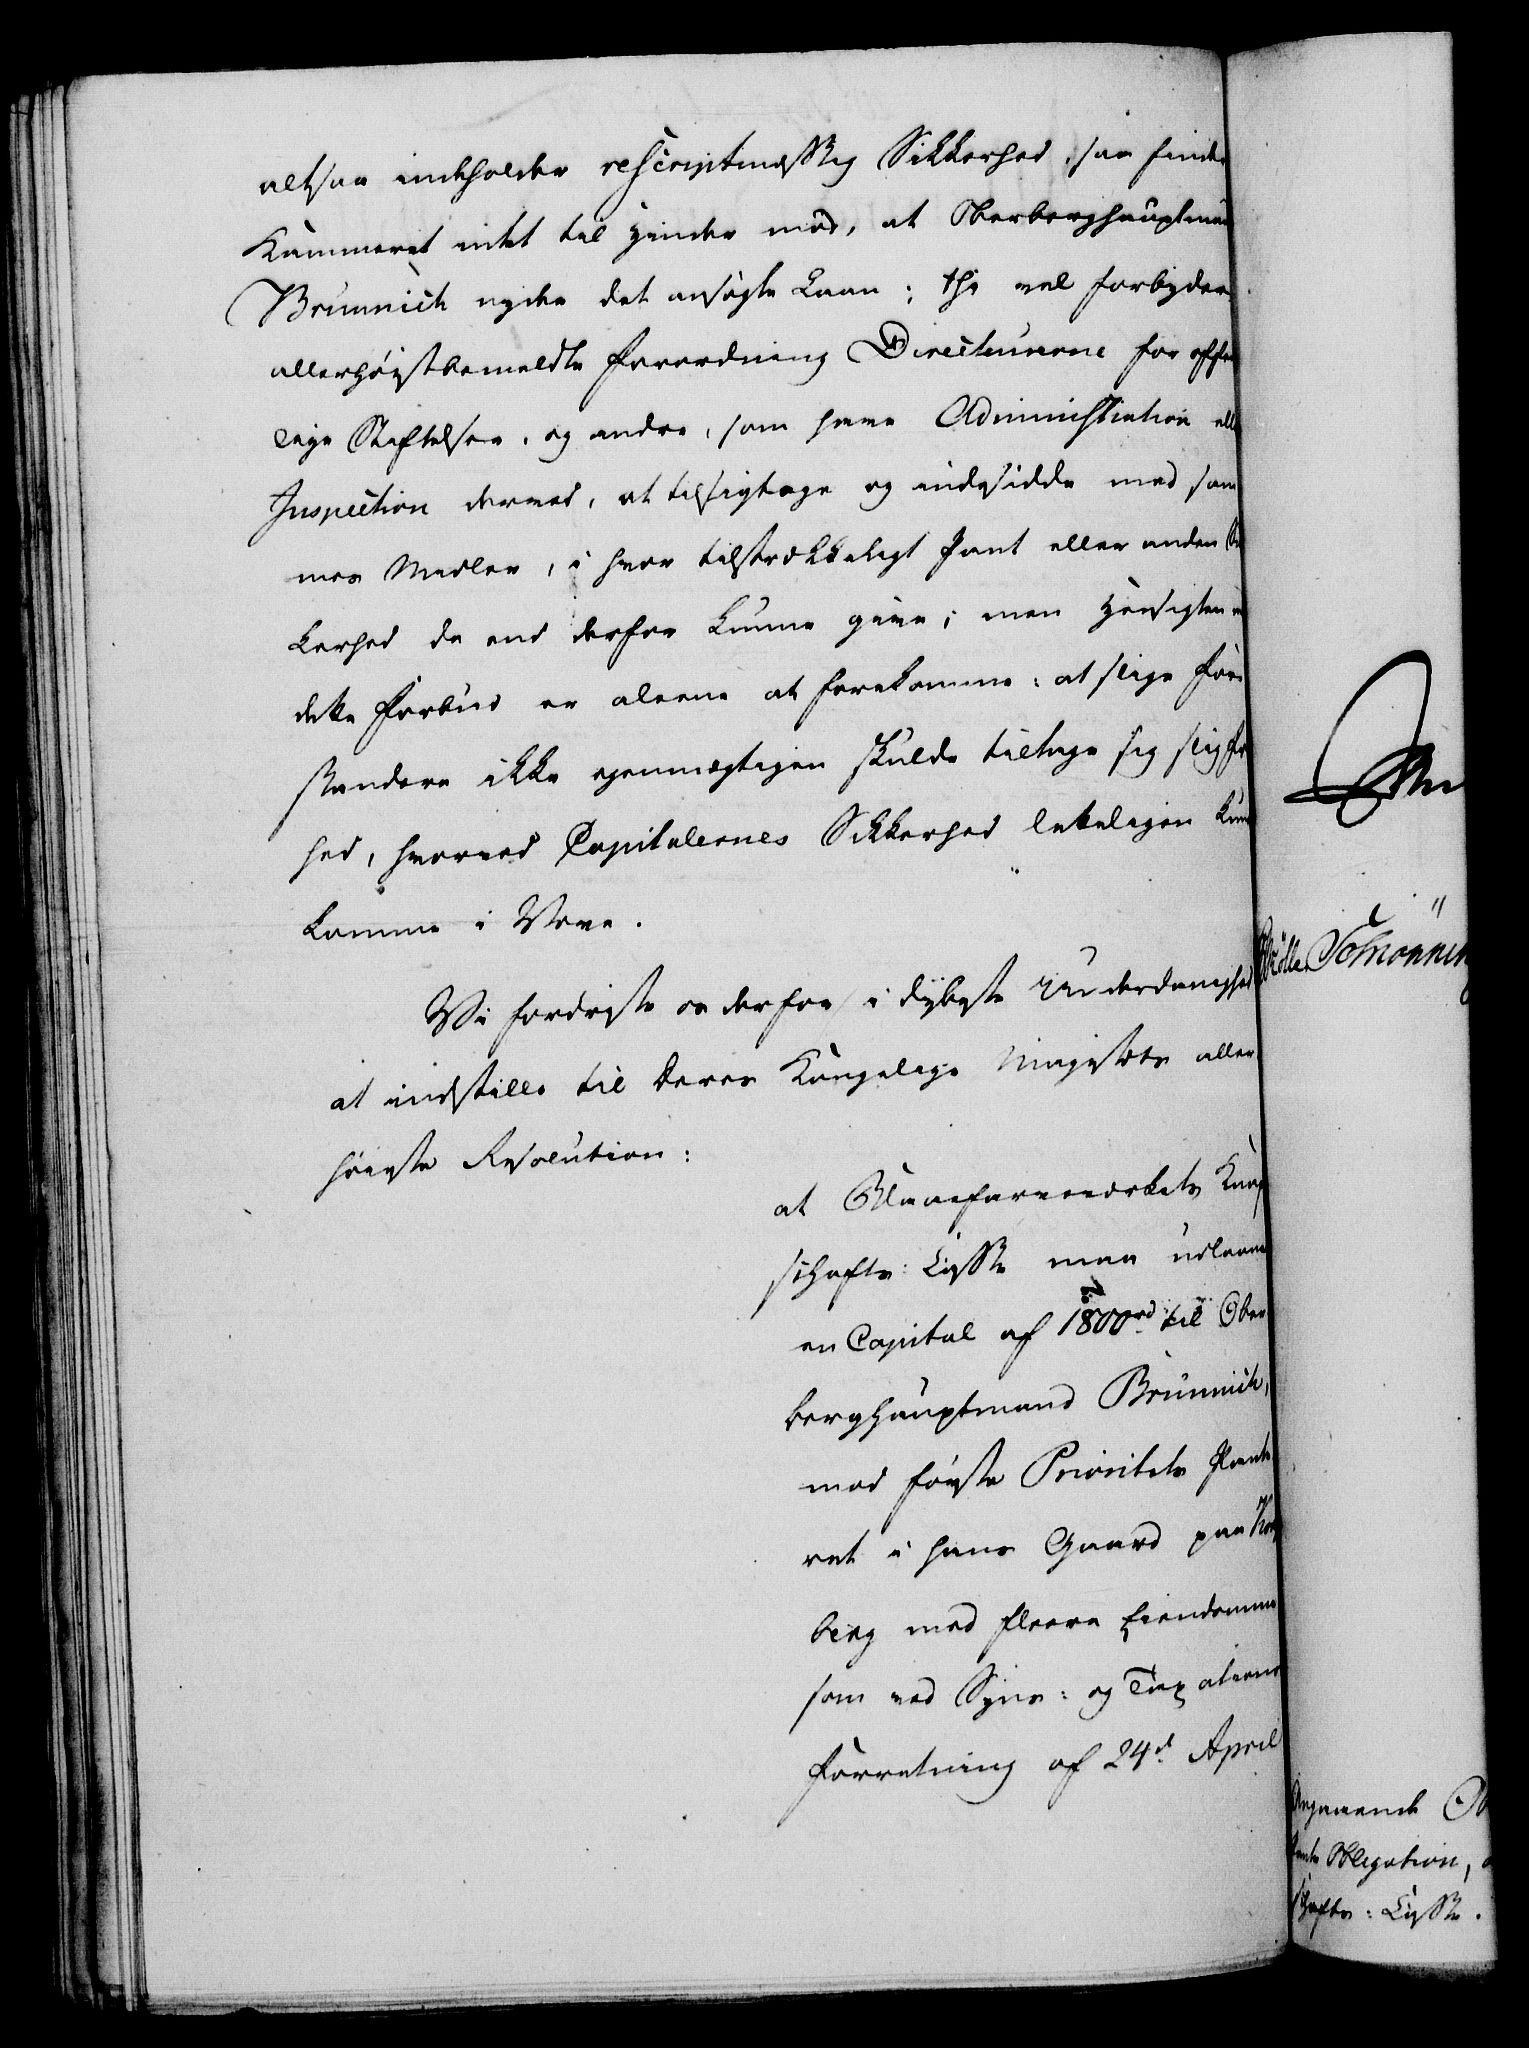 altsaa indeholder rescriptmæssig Sikkerhed, saa finder
Kammeret intet til Hinder mod, at Oberberghauptmand
Brünnich nyder det ansøgte Laan; thi vel forbyder
allerhøistbemeldte Forordning Directeurerne for offent
lige Stiftelser, og andre, som have Administration eller
Inspection dermed, at tilsigtage og indesidde med sam
mes Midler, i hvor tilstrækkeligt Pant eller anden Sik
kerhed de end derfor kunne give; men Hensigten
dette Forbud er alene at forekomme: at slige For
standere ikke egenmægtigen skulde tiltage sig slig Fri
hed, hvorved Capitalernes Sikkerhed letteligen kunde
komme i Vove.
Vi fordriste os derfor i dybeste Underdanighed
at indstille til Deres Kongelige Majestæts aller
høieste Resolution:
at Blaafarveværkets Knap
schafts: Casse maa udlaane
en Capital af 1800 rd til Ober
berghauptmand Brünnich,
mod første Prioritets Pante
ret i hans Gaard paa Kongs
berg med fleere Eiendomme
som ved Syns: og Taxations
Forretning af 24d April
Schönning
Angaaende
Pante Obligation,
schafts: Casse.